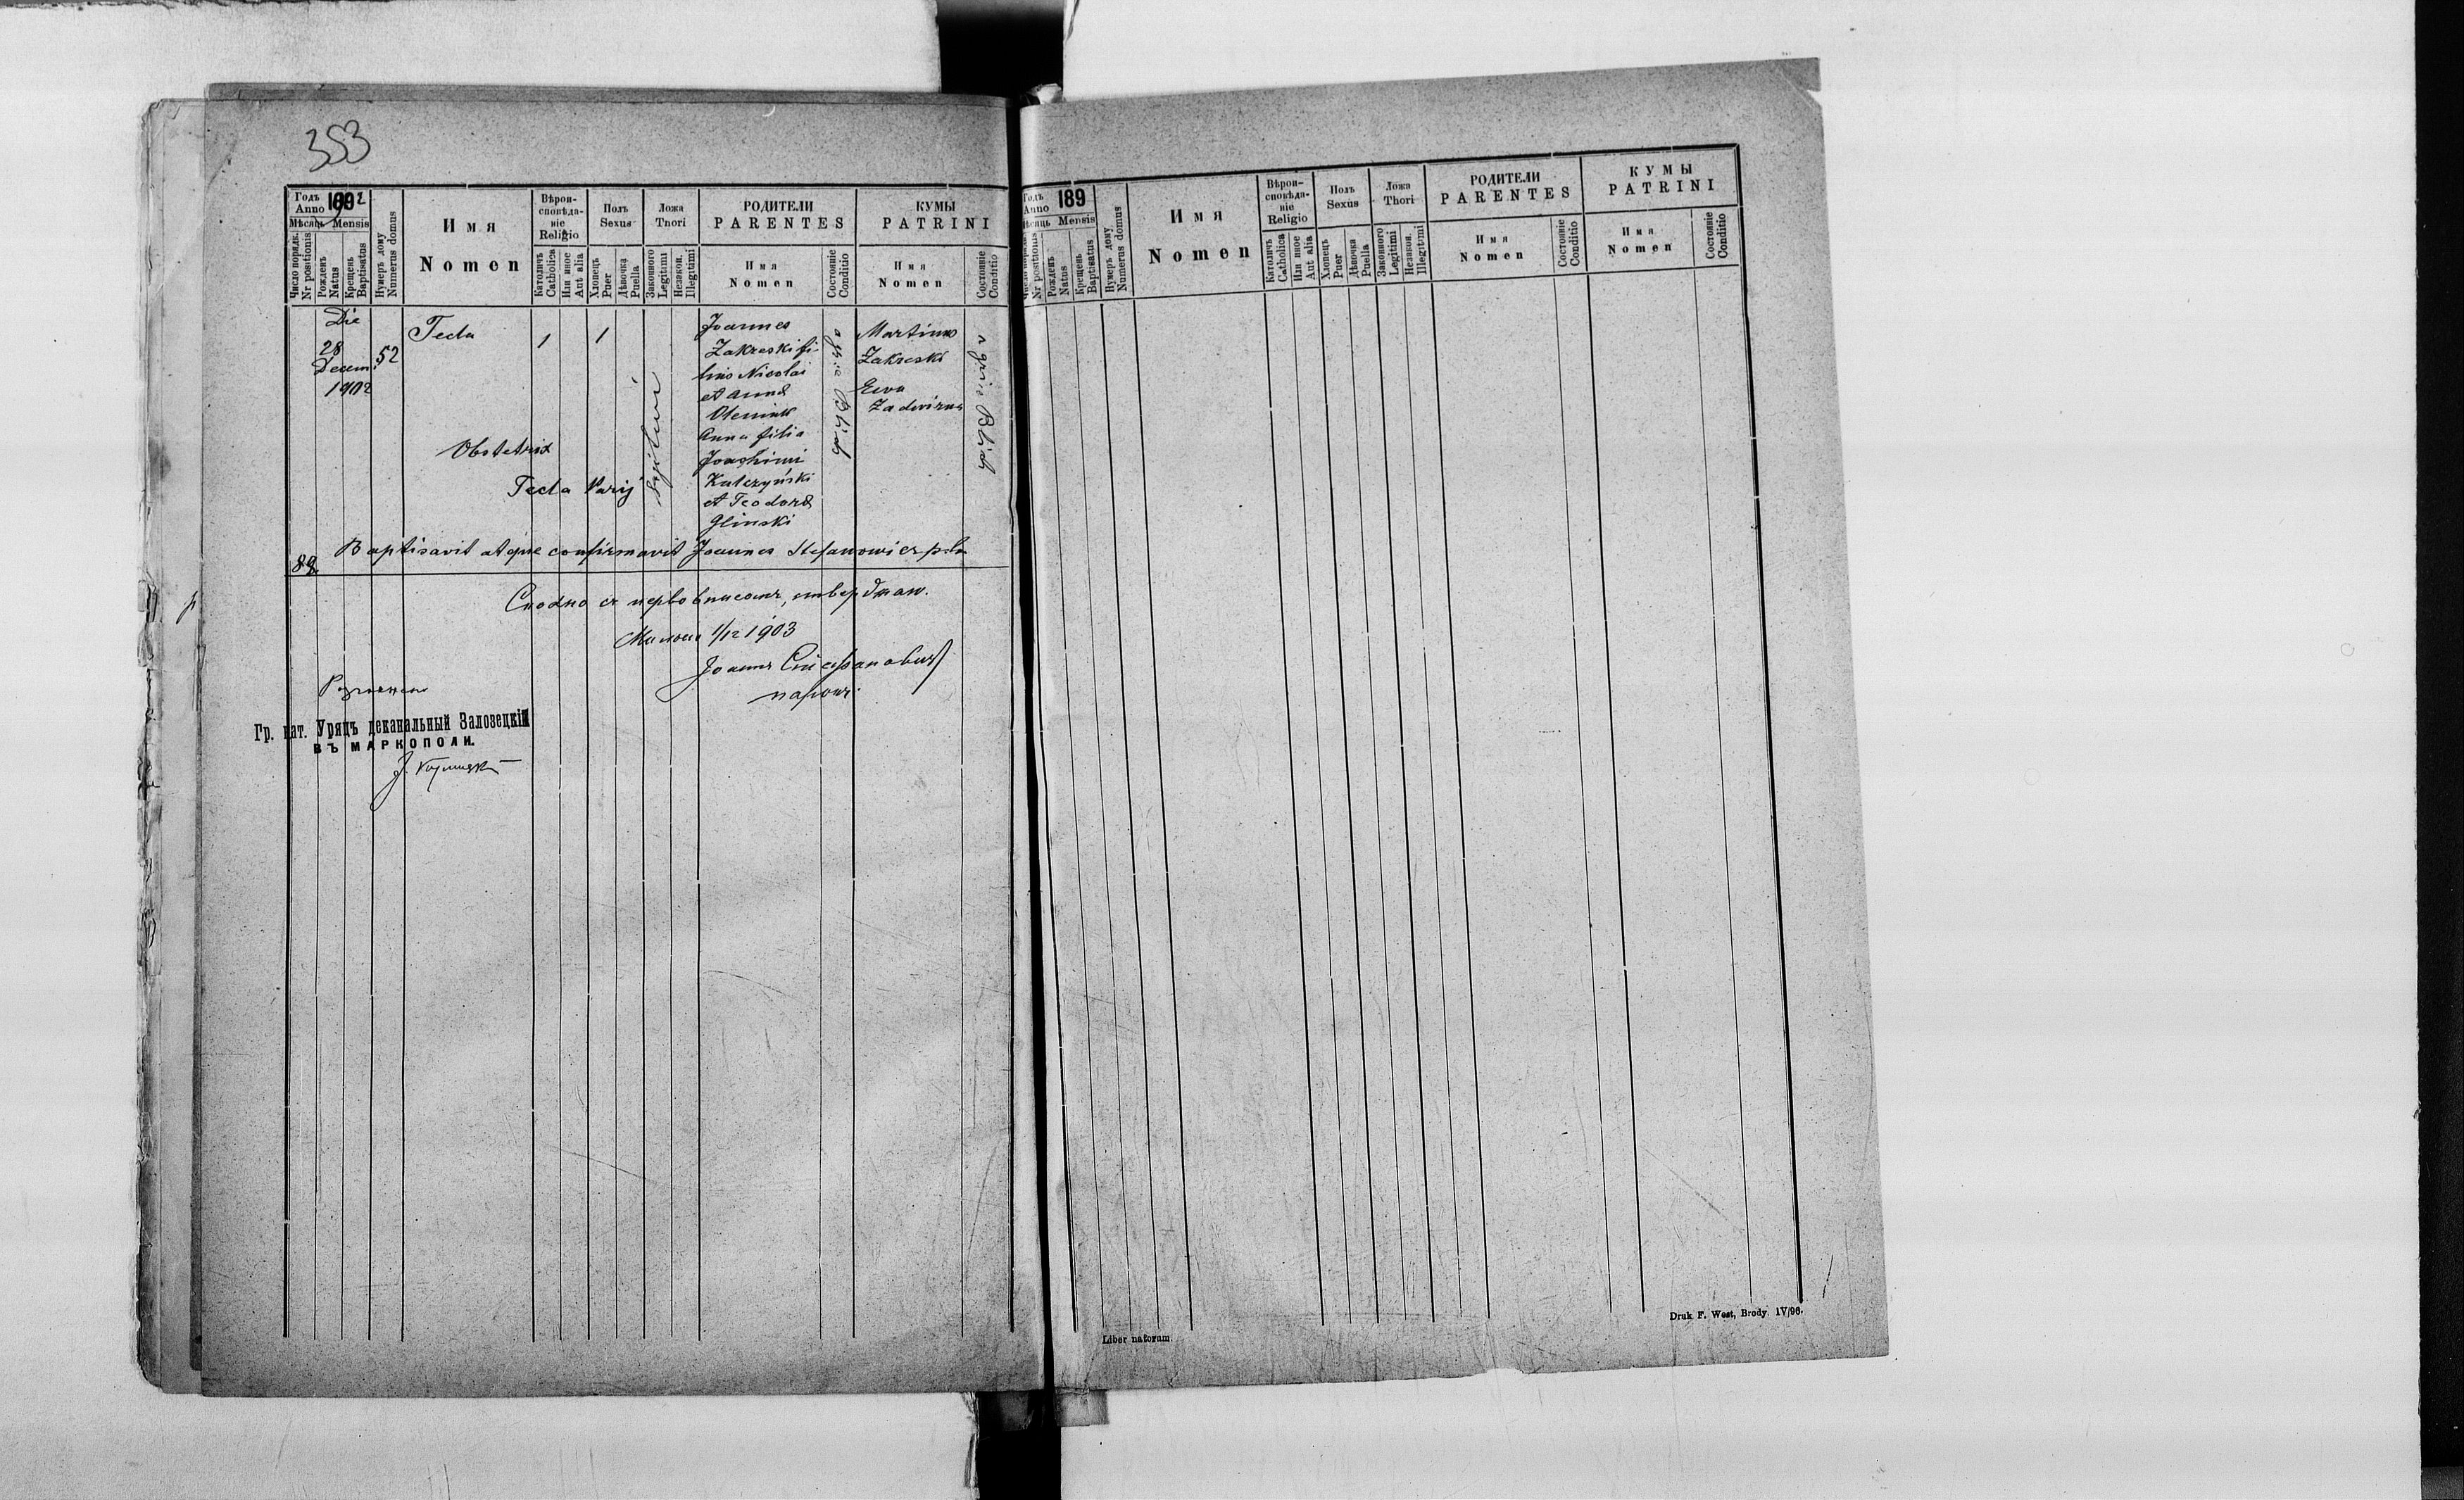 353
Годъ Anno 1902
Мѣсяць Mensis
Число порядк. Nr positionis
Рожденъ Natus
Крещенъ Baptisatus
Нумеръ дому Numerus domus
Имя
Nomen
Вѣрои-
сповѣда-
ніе
Religio
Католичъ Catholica
Или иное Aut alia
Полъ
Sexus
Хлопець Puer
Дѣвочка Puella
Ложа
Thori
Законного Legitimi
Незакон. Illegitimi
РОДИТЕЛИ
PARENTES
Имя
Nomen
Состояніе Conditio
КУМЫ
PATRINI
Имя
Nomen
Состояніе Conditio
Die
28
Decem.
1902
52
Tecla
1
1
legitimi
Joannes
Zakreski fi-
lius Nicolai
et Anna
Oleniuk
Anna filia
Joachimi
Kulczyński
et Teodora
Glinski
Martinus
Zakreski
Ewa
Zadwirna
Obstetrix
Tecla
88
Baptisavit atque confirmavit Joannes Stefanowicz
1/12 1903
Гр. кат. Урядъ деканальный Залозецкій
ВЪ МАРКОПОЛИ.
Годъ Anno 189
Мѣсяць Mensis
Число порядк. Nr positionis
Рожденъ Natus
Крещенъ Baptisatus
Нумеръ дому Numerus domus
Имя
Nomen
Вѣрои-
сповѣда-
ніе
Religio
Католичъ Catholica
Или иное Aut alia
Полъ
Sexus
Хлопець Puer
Дѣвочка Puella
Ложа
Thori
Законного Legitimi
Незакон. Illegitimi
РОДИТЕЛИ
PARENTES
Имя
Nomen
Состояніе Conditio
КУМЫ
PATRINI
Имя
Nomen
Состояніе Conditio
Liber natorum.
Druk F. West, Brody. IV/96.